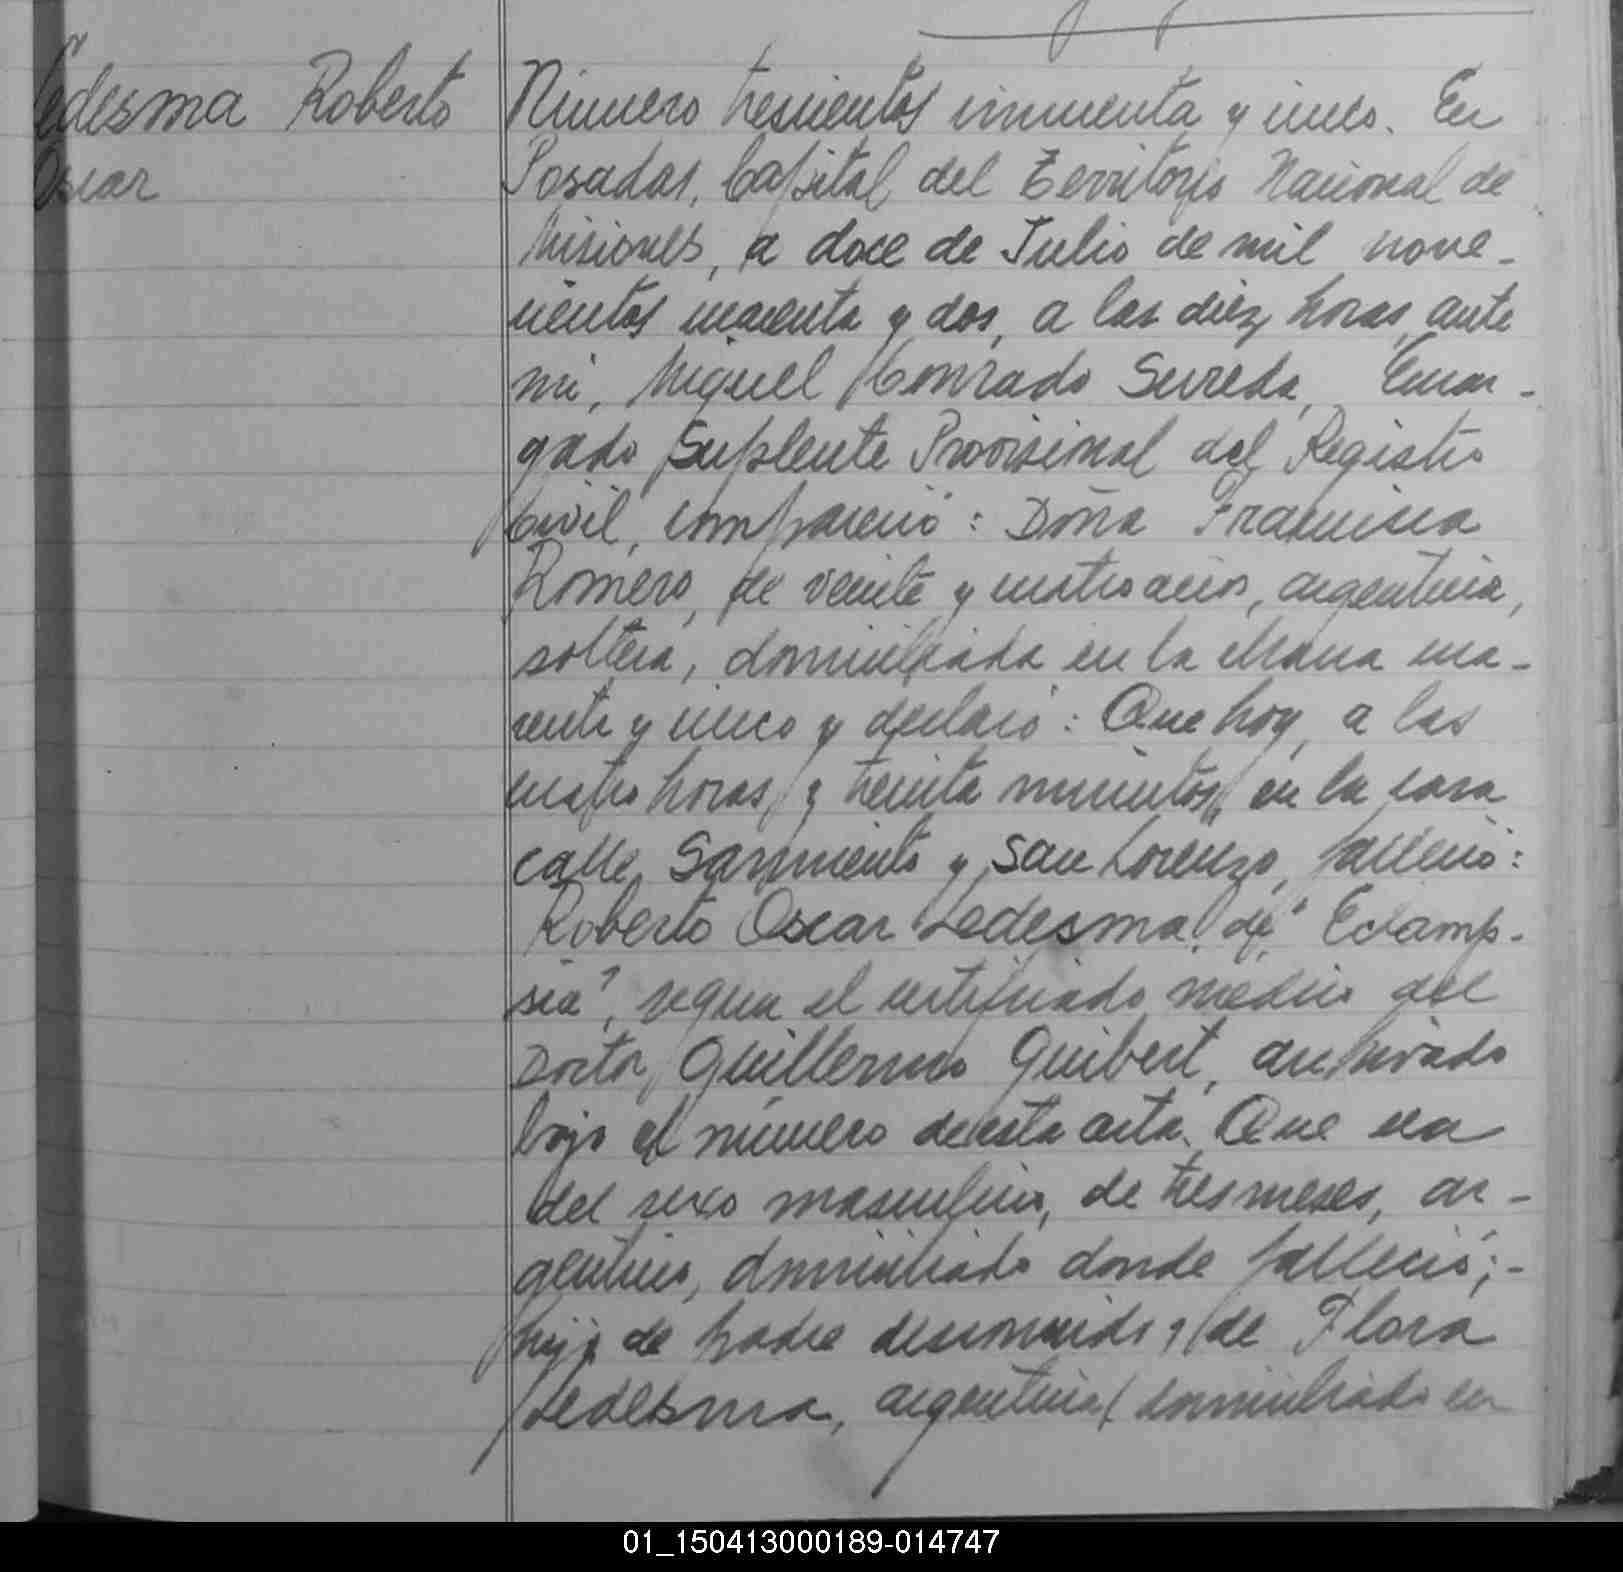 Ledesma Roberto
Oscar
Número trescientos cincuenta y cinco. En
Posadas, Capital del Territorio Nacional de
Misiones, a doce de Julio de mil nove-
cientos cuarenta y dos, a las diez horas, ante
mi, Miguel Conrado Sureda, Encar-
gado Suplente Provisional del Registro
Civil, compareció: Doña Francisca
Romero, de veinte y cuatro años, argentina,
soltera, domiciliada en la chacra cua-
renta y cinco y declaró: Que hoy, a las
cuatro horas y treinta minutos, en la casa
calle Sarmiento y San Lorenzo, falleció:
Roberto Oscar Ledesma, de "Eclamp-
sia", según el certificado médico del
Doctor Guillermo Guibert, archivado
bajo el número de esta acta. Que era
del sexo masculino, de tres meses, ar-
gentino, domiciliado donde falleció;-
hijo de padre desconocido y de Flora
Ledesma, argentina, domiciliada en
01_150413000189-014747